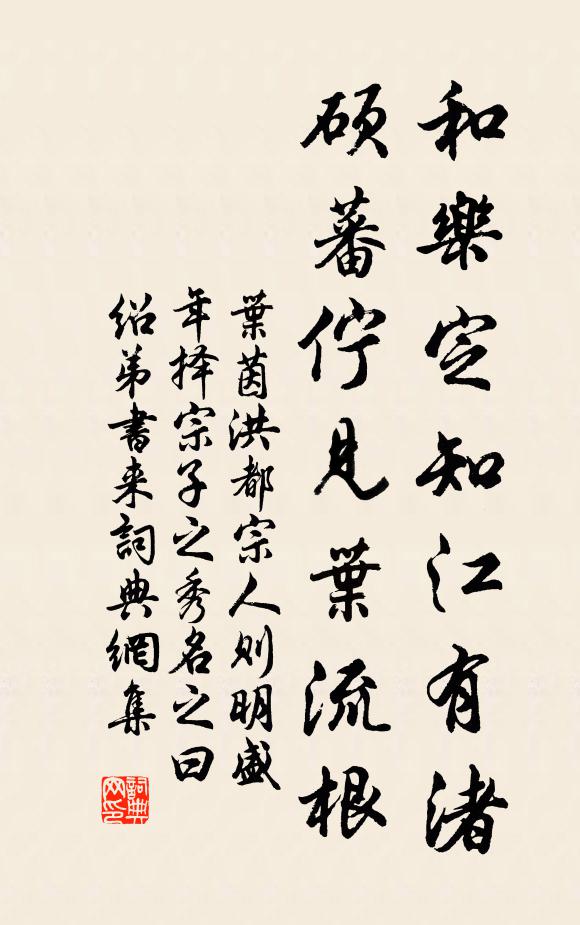 和樂定知江有渚
碩蕃佇見葉流根
葉茵洪都宗人则明盛
年择宗子之秀名之曰
绍弟書来詞典網集
詞典网印